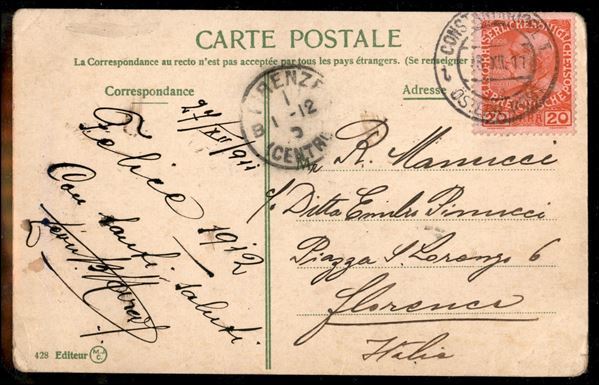 CARTE POSTALE
La Correspondance au recto n'est pas acceptée par tous les pays étrangers. (Se renseigner
Correspondance
Adresse
27/XII/911
Felice 1912
Con tanti saluti
R. Manucci
c/o Ditta Emilio Pinucci
Piazza S. Lorenzo 6
Florence
Italie
428 Editeur M.J.C.
FIRENZE
1-12
(CENTR
CONSTANTINOPEL 1
XII.11
ÖSTERR.
KAISERLICHE KÖNIGLICHE ÖSTERREICHISCHE POST
PARA 20